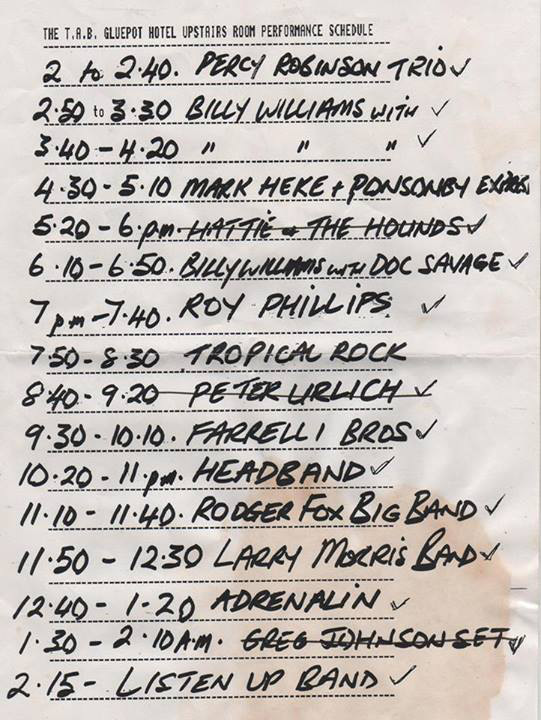 THE T.A.B. GLUEPOT HOTEL UPSTAIRS ROOM PERFORMANCE SCHEDULE
2 to 2.40. PERCY ROBINSON TRIO ✓
2.50 to 3.30 BILLY WILLIAMS WITH ✓
3.40 - 4.20 " " " ✓
4.30 - 5.10 MARK HEKE + PONSONBY EXPRESS
5.20 - 6.pm. HATTIE & THE HOUNDS ✓
6.10 - 6.50. BILLY WILLIAMS with DOC SAVAGE ✓
7pm - 7.40. ROY PHILLIPS ✓
7.50 - 8.30 TROPICAL ROCK
8.40 - 9.20 PETER URLICH ✓
9.30 - 10.10. FARRELLI BROS ✓
10.20 - 11pm. HEADBAND ✓
11.10 - 11.40. RODGER FOX BIG BAND ✓
11.50 - 12.30 LARRY MORRIS BAND ✓
12.40 - 1.20 ADRENALIN ✓
1.30 - 2.10 A.M. GREG JOHNSON SET ✓
2.15 - LISTEN UP BAND ✓